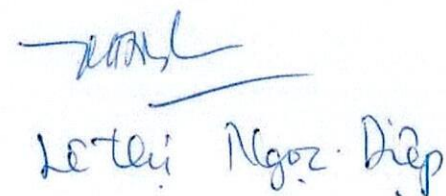 Lê Thị Ngọc Diệp